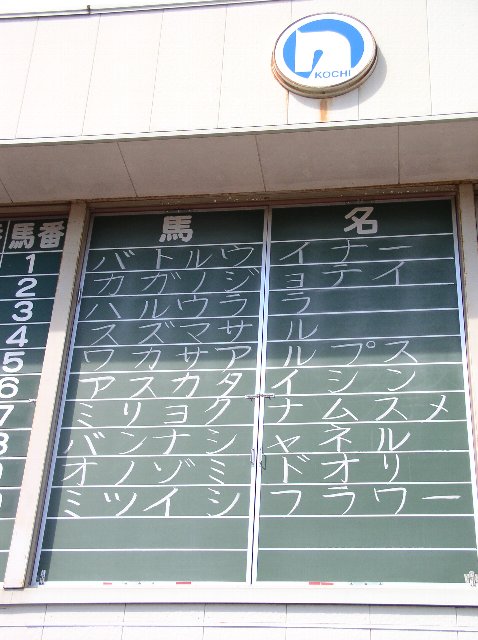 KOCHI
馬番 馬名
1 バトルウイナー
2 カガノジョテイ
3 ハルウララ
4 スズマサル
5 ワカサアルプス
6 アスカタイシン
7 ミリョクナムスメ
8 バンナシャネル
オノゾミドオリ
ミツイシフラワー